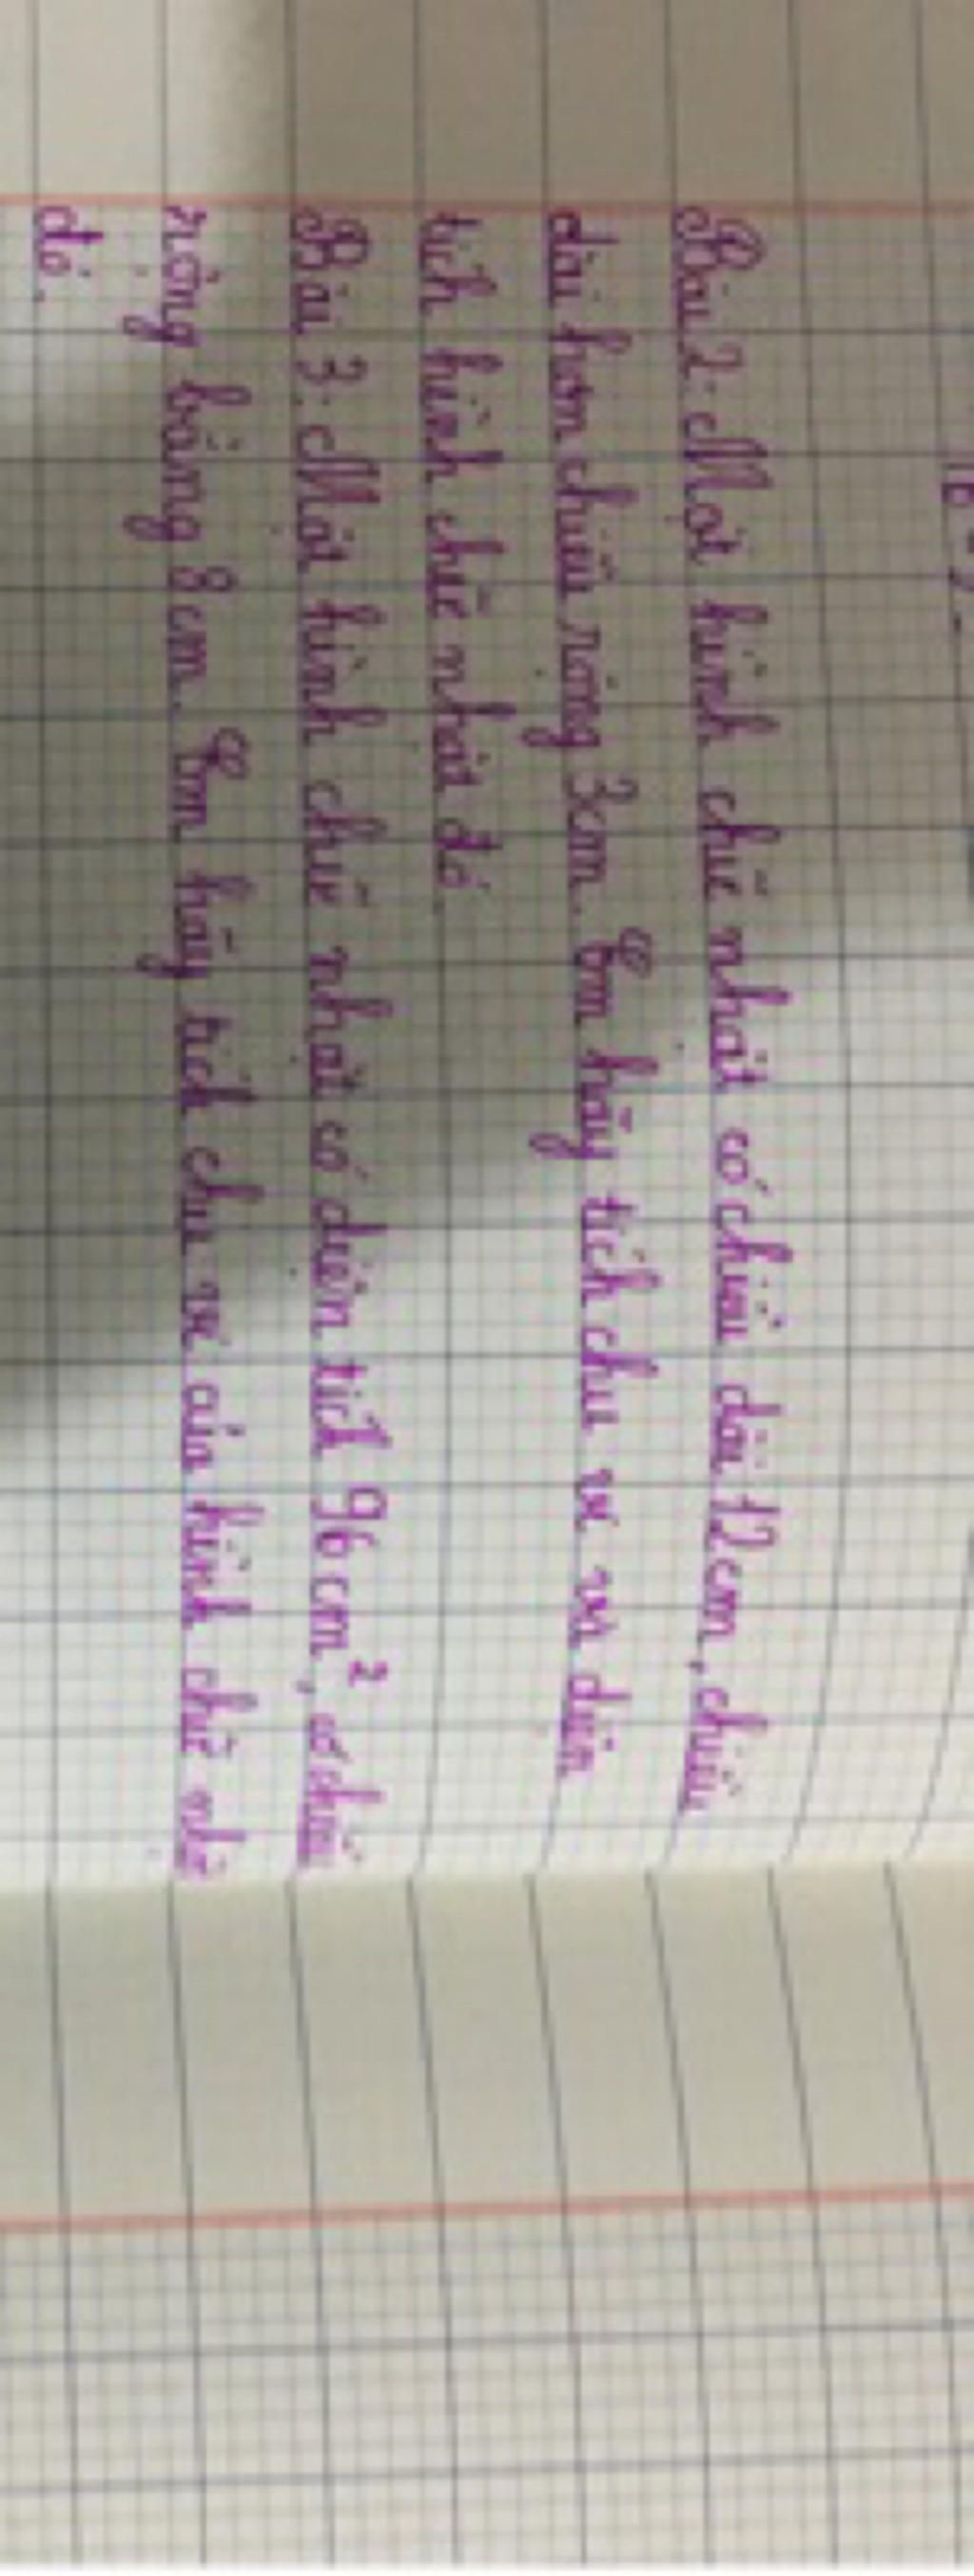 Bài 2: Một hình chữ nhật có chiều dài 12cm, chiều
dài hơn chiều rộng 3cm. Em hãy tích chu vi và diện
tích hình chữ nhật đó.
Bài 3: Một hình chữ nhật có diện tích 96cm², có chiều
rộng bằng 8cm. Em hãy tích chu vi của hình chữ nhật
đó.